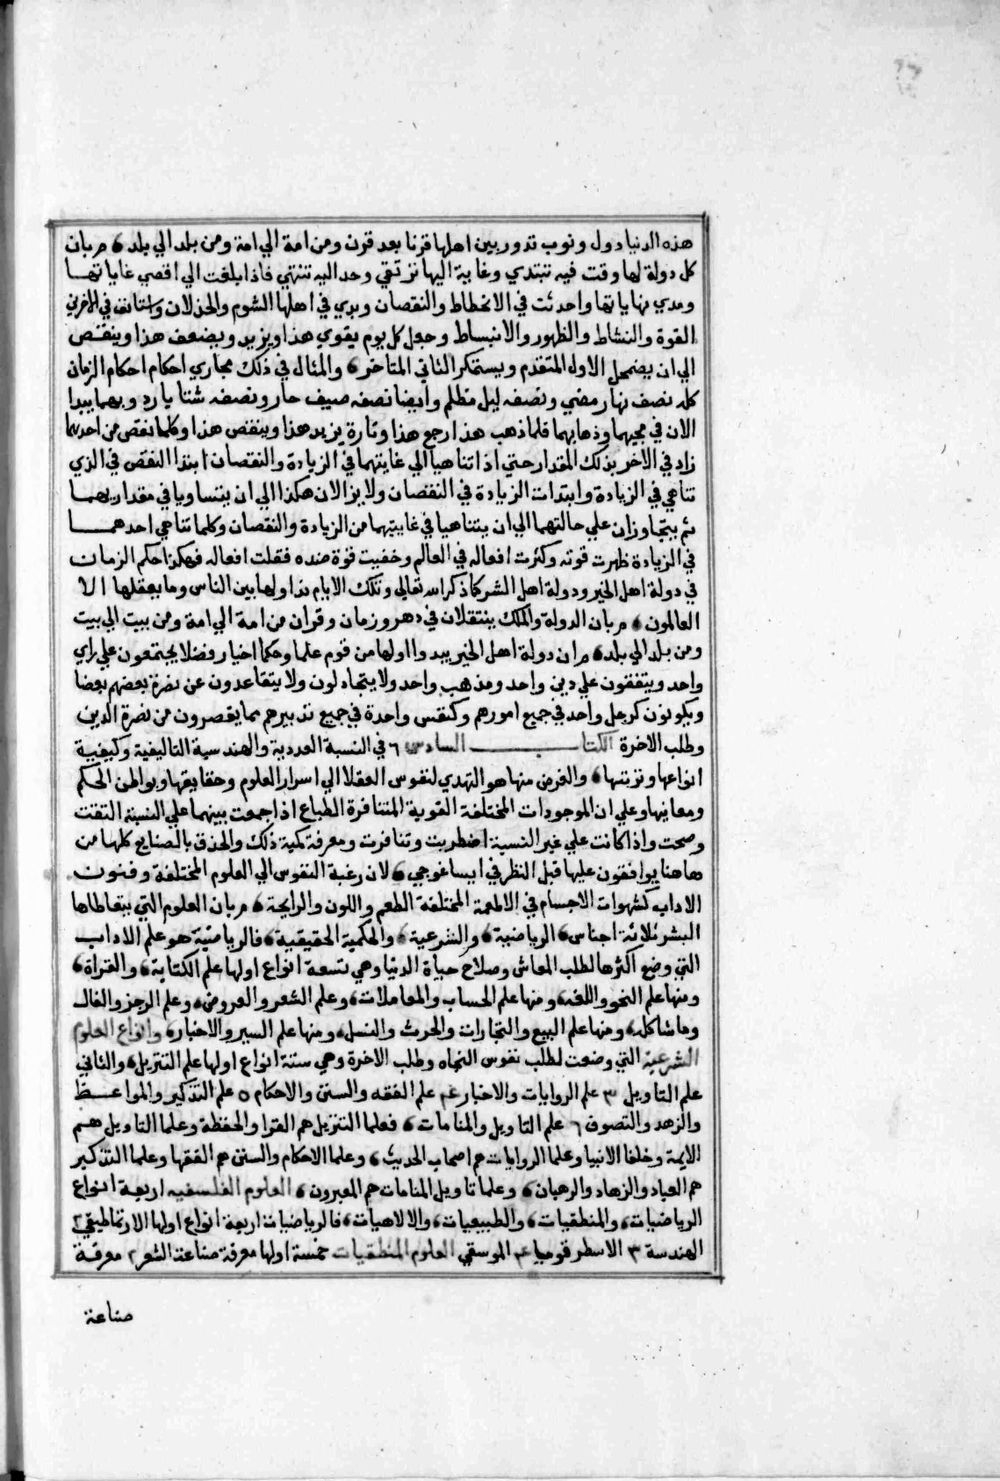 هذه الدنيا دول ونوب تدور بين اهلها قرنا بعد قرن ومن امة الي امة ومن بلد الي بلد ٥ مر بان
كل دولة لها وقت فيه تبتدي وغاية اليها ترتقي وحد اليه تنتهي فاذا بلغت الي اقصي غاياتها
ومدي نهاياتها واحدثت في الانحطاط والنقصان وبدي في اهلها الشوم والخذلان واستانف في الاخرين
القوة والنشاط والظهور والانبساط وجعل كل يوم يقوي هذا ويزيد ويضعف هذا وينقص
الي ان يضمحل الاول المتقدم ويستمكن الثاني المتاخر ٥ والمثال في ذلك مجاري احكام احكام الزمان
كله نصف نهار مضي ونصفه ليل مظلم وايضا نصفه صيف حار ونصفه شتا بارد وبهما يبدا
الان في مجيهما وذهابهما فلما ذهب هذا رجع هذا وتارة يزيد هذا وينقص هذا وكلما نقص من احدهما
زاد في الاخر بذلك المقدار حتي اذا تناهيا الي غايتهما في الزيادة والنقصان ابتدا النقص في الذي
تناهي في الزيادة وابتدات الزيادة في النقصان ولا يزالان هكذا الي ان يتساويا في مقداريهما
ثم يتجاوزان علي حالتهما الي ان يتناهيا في غايتهما من الزيادة والنقصان وكلما تناهي احدهما
في الزيادة ظهرت قوته وكثرت افعاله في العالم وخفيت قوة ضده فقلت افعاله فهكذا حكم الزمان
في دولة اهل الخير ودولة اهل الشر كما ذكر الله تعالي وتلك الايام نداولها بين الناس وما يعقلها الا
العالمون ٥ مر بان الدولة والملك ينتقلان في دهر وزمان وقران من امة الي امة ومن بيت الي بيت
ومن بلد الي بلد ٥ مر ان دولة اهل الخير يبدوا اولها من قوم علما وحكما اخيار وفضلا يجتمعون علي راي
واحد ويتفقون علي دين واحد ومذهب واحد ولا يتجادلون ولا يتقاعدون عن نصرة بعضهم بعضا
ويكونون كرجل واحد في جميع امورهم وكنفس واحدة في جميع تدبيرهم مما يقصرون من نصرة الدين
وطلب الاخرة الكتاب السادس ٦ في النسبة العددية والهندسية التاليفية وكيفية
انواعها وترتيبها ٥ والغرض منها هو التهدي لنفوس العقلا الي اسرار العلوم وحقايقها وبواطن الحكم
ومعانيها وعلي ان الموجودات المختلفة القوية المتنافرة الطباع اذا جمعت بينهما علي النسبة التقت
وصحت واذا كانت علي غير النسبة اضطربت وتنافرت ومعرفة كمية ذلك والحذق بالصنايع كلها من
هاهنا يوافقون عليها قبل النظر في ايساغوجي ٥ لان رغبة النفوس الي العلوم المختلفة وفنون
الاداب كشهوات الاجسام في الاطعمة المختلفة الطعم واللون والرايحة ٥ مر بان العلوم التي يتعاطاها
البشر ثلاثة اجناس ٥ الرياضية ٥ والشرعية ٥ والحكمية الحقيقية ٥ فالرياضية هو علم الاداب
التي وضع اكثرها لطلب المعاش وصلاح حياة الدنيا وهي تسعة انواع اولها علم الكتابة ٥ والقراة ٥
ومنها علم النحو واللغة ٥ ومنها علم الحساب والمعاملات ٥ وعلم الشعر والعروض ٥ وعلم الزجر والفال
وما شاكله ٥ ومنها علم البيع والتجارات والحرث والنسل ٥ ومنها علم السير والاخبار ٥ وانواع العلوم
الشرعية التي وضعت لطلب نفوس النجاه وطلب الاخرة وهي ستة انواع اولها علم التنزيل ٥ والثاني
علم التاويل ٣ علم الروايات والاخبار ٤ علم الفقه والسنن والاحكام ٥ علم التذكير والمواعظ
والزهد والتصوف ٦ علم التاويل والمنامات ٥ فعلما التنزيل هم القرا والحفظة وعلما التاويل هم
الايمة وخلفا الانبيا وعلما الروايات هم اصحاب الحديث ٥ وعلما الاحكام والسنن هم الفقها وعلما التذكير
هم العباد والزهاد والرهبان ٥ وعلما تاويل المنامات هم المعبرون ٥ العلوم الفلسفيه اربعة انواع
الرياضيات ٥ والمنطقيات ٥ والطبيعيات ٥ والالاهيات ٥ فالرياضيات اربعة انواع اولها الارتماطيقي ٢
الهندسة ٣ الاسطرقوميا ٤ الموسقي العلوم المنطقيات خمسة اولها معرفة صناعة الشعر ٢ معرفة
صناعة